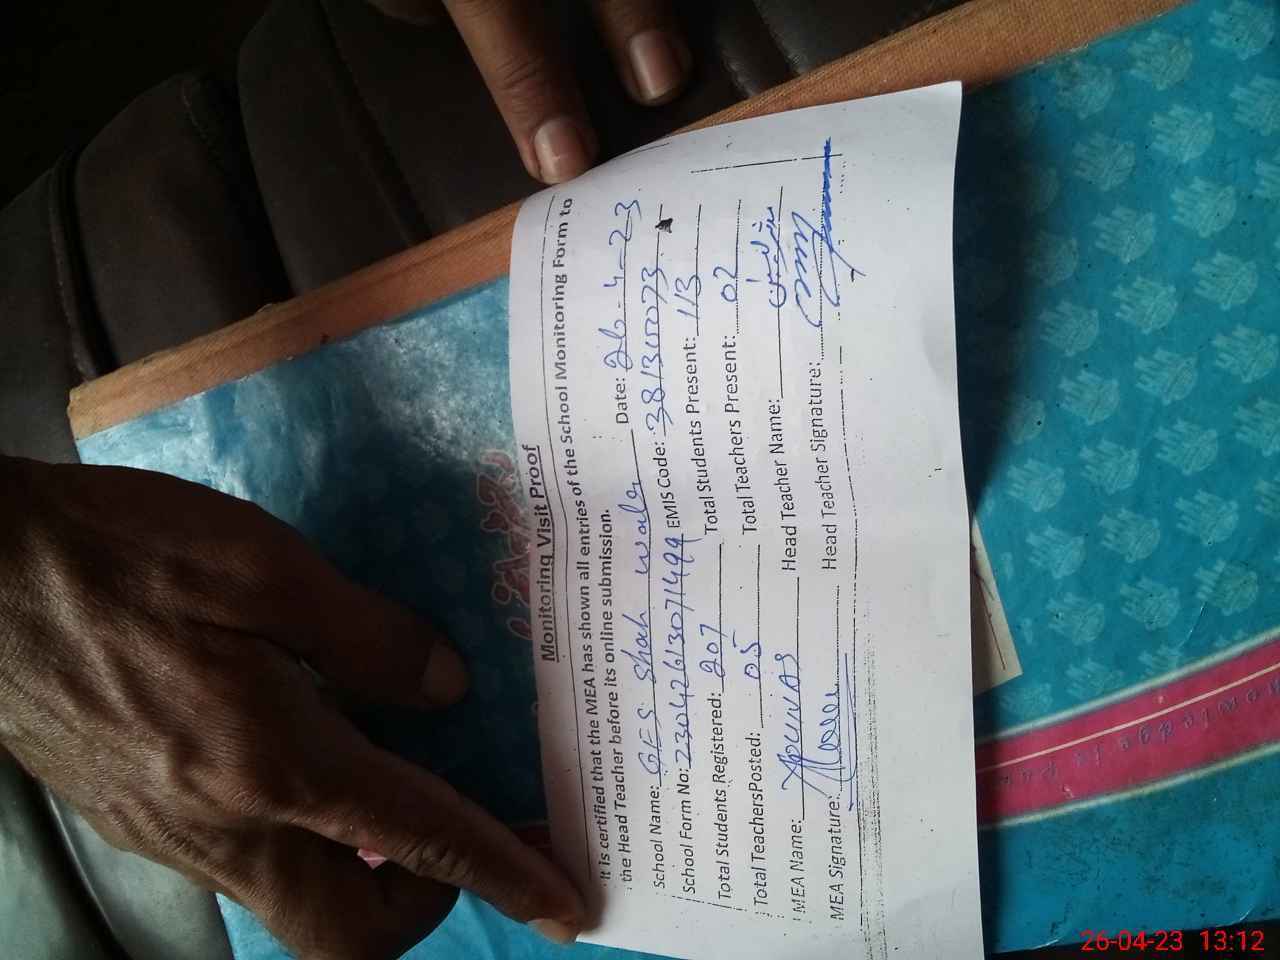 Monitoring Visit Proof
It is certified that the MEA has shown all entries of the School Monitoring Form to
the Head Teacher before its online submission.
School Name: GES Shah wala Date: 26-4-23
School Form No: 23042613071499 EMIS Code: 381310073
Total Students Registered: 207 Total Students Present: 113
Total TeachersPosted: 05 Total Teachers Present: 02
MEA Name: Head Teacher Name:
MEA Signature: Head Teacher Signature:
26-04-23 13:12